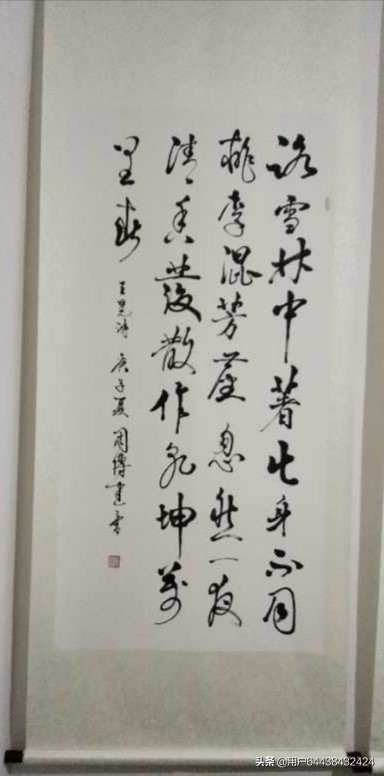 冰雪林中著此身不同
桃李混芳塵忽然一夜
清香發散作乾坤萬
里春 王冕诗 庚子夏 周建書
头条 @用户64438432424